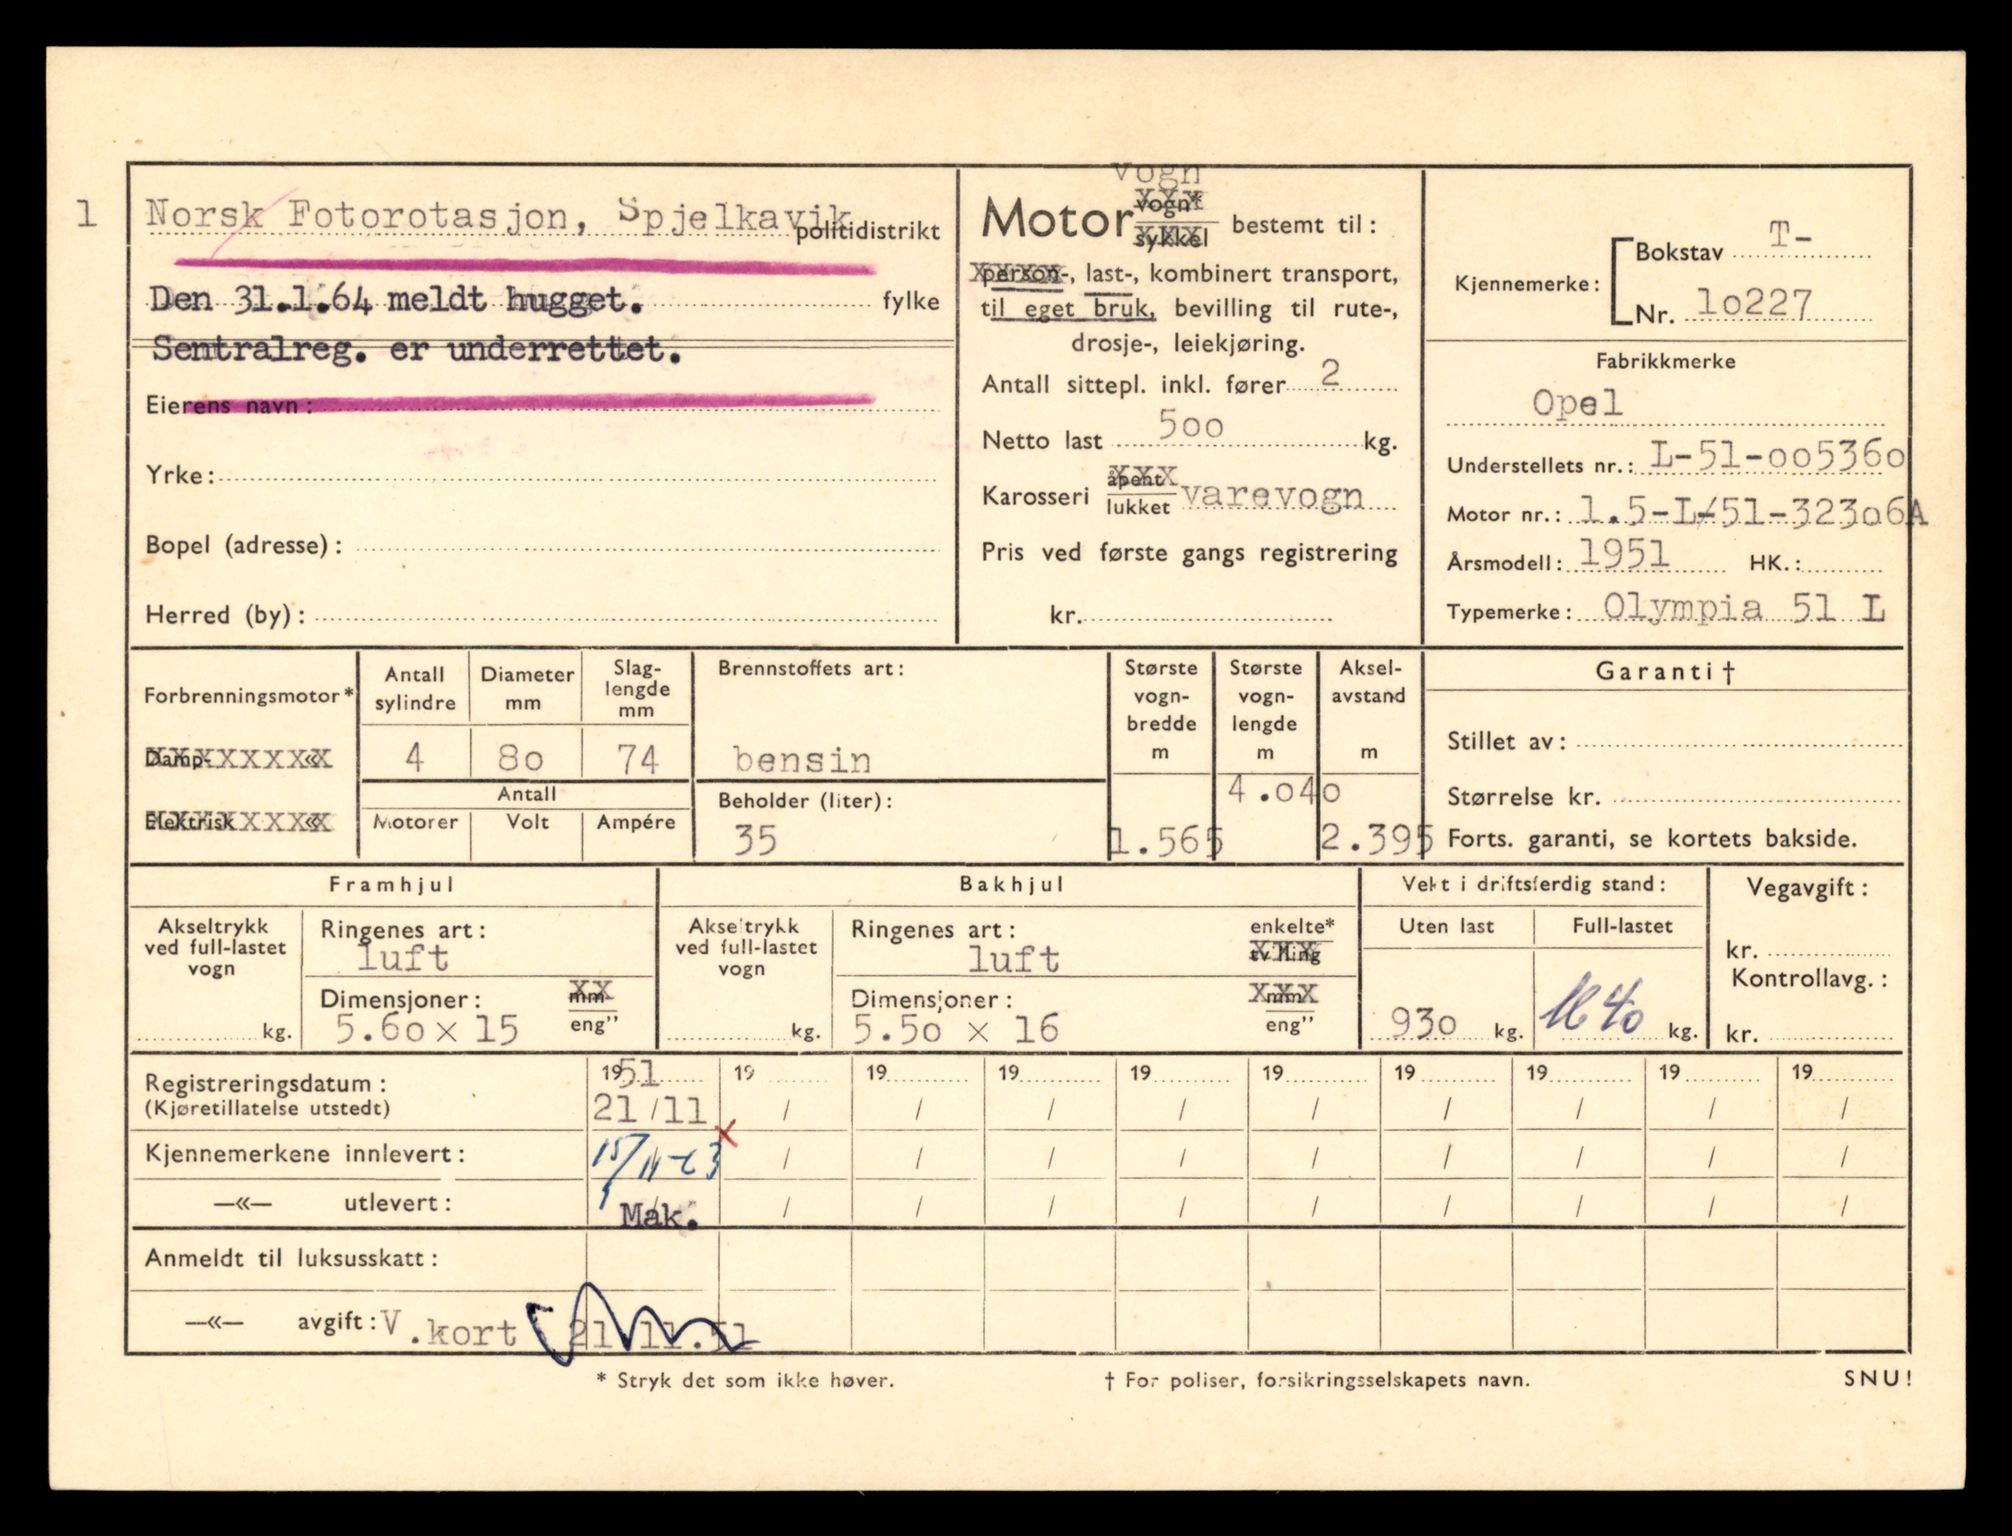 1 Norsk Fotorotasjon, Spjelkavik politidistrikt
Den 31.1.64 meldt hugget. fylke
Sentralreg. er underrettet.
Eierens navn:
Yrke:
Bopel (adresse):
Herred (by):
vogn
Motor vogn* sykkel bestemt til:
person-, last-, kombinert transport,
til eget bruk, bevilling til rute-,
drosje-, leiekjøring.
Antall sittepl. inkl. fører 2
Netto last 500 kg.
Karosseri åpent lukket varevogn
Pris ved første gangs registrering
kr.
Kjennemerke:
Bokstav T-
Nr. 1o227
Fabrikkmerke
Opel
Understellets nr.: L-51-oo536o
Motor nr.: 1.5-L-51-323o6A
Årsmodell: 1951 HK.:
Typemerke: Olympia 51 L
Forbrenningsmotor*
Damp- «
Elektrisk «
Antall sylindre
Diameter mm
Slag-lengde mm
4 8o 74
Antall
Motorer Volt Ampére
Brennstoffets art:
bensin
Beholder (liter):
35
Største vogn-bredde m
1.565
Største vogn-lengde m
4.o4o
Aksel-avstand m
2.395
Garanti †
Stillet av:
Størrelse kr.
Forts. garanti, se kortets bakside.
Framhjul
Akseltrykk ved full-lastet vogn
kg.
Ringenes art:
luft
Dimensjoner: mm eng"
5.6o x 15
Bakhjul
Akseltrykk ved full-lastet vogn
kg.
Ringenes art: enkelte* tvilling
luft
Dimensjoner: mm eng"
5.5o x 16
Vekt i driftsferdig stand:
Uten last Full-lastet
93o kg. 1640 kg.
Vegavgift:
kr.
Kontrollavg.:
kr.
Registreringsdatum: 1951 19 19 19 19 19 19 19 19 19
(Kjøretillatelse utstedt) 21/11 / / / / / / / / /
Kjennemerkene innlevert: 15/11-63 x / / / / / / / / /
—«— utlevert: Mak. / / / / / / / / /
Anmeldt til luksusskatt:
—«— avgift: V.kort 21 11.51
* Stryk det som ikke høver. † For poliser, forsikringsselskapets navn. SNU!